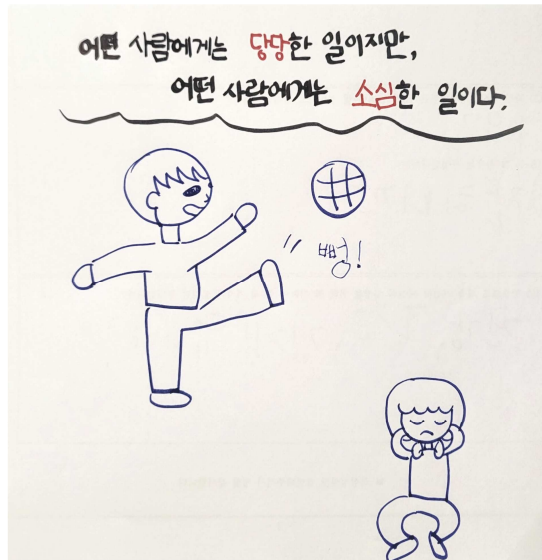 어떤 사람에게는 당당한 일이지만,
어떤 사람에게는 소심한 일이다.
뻥!